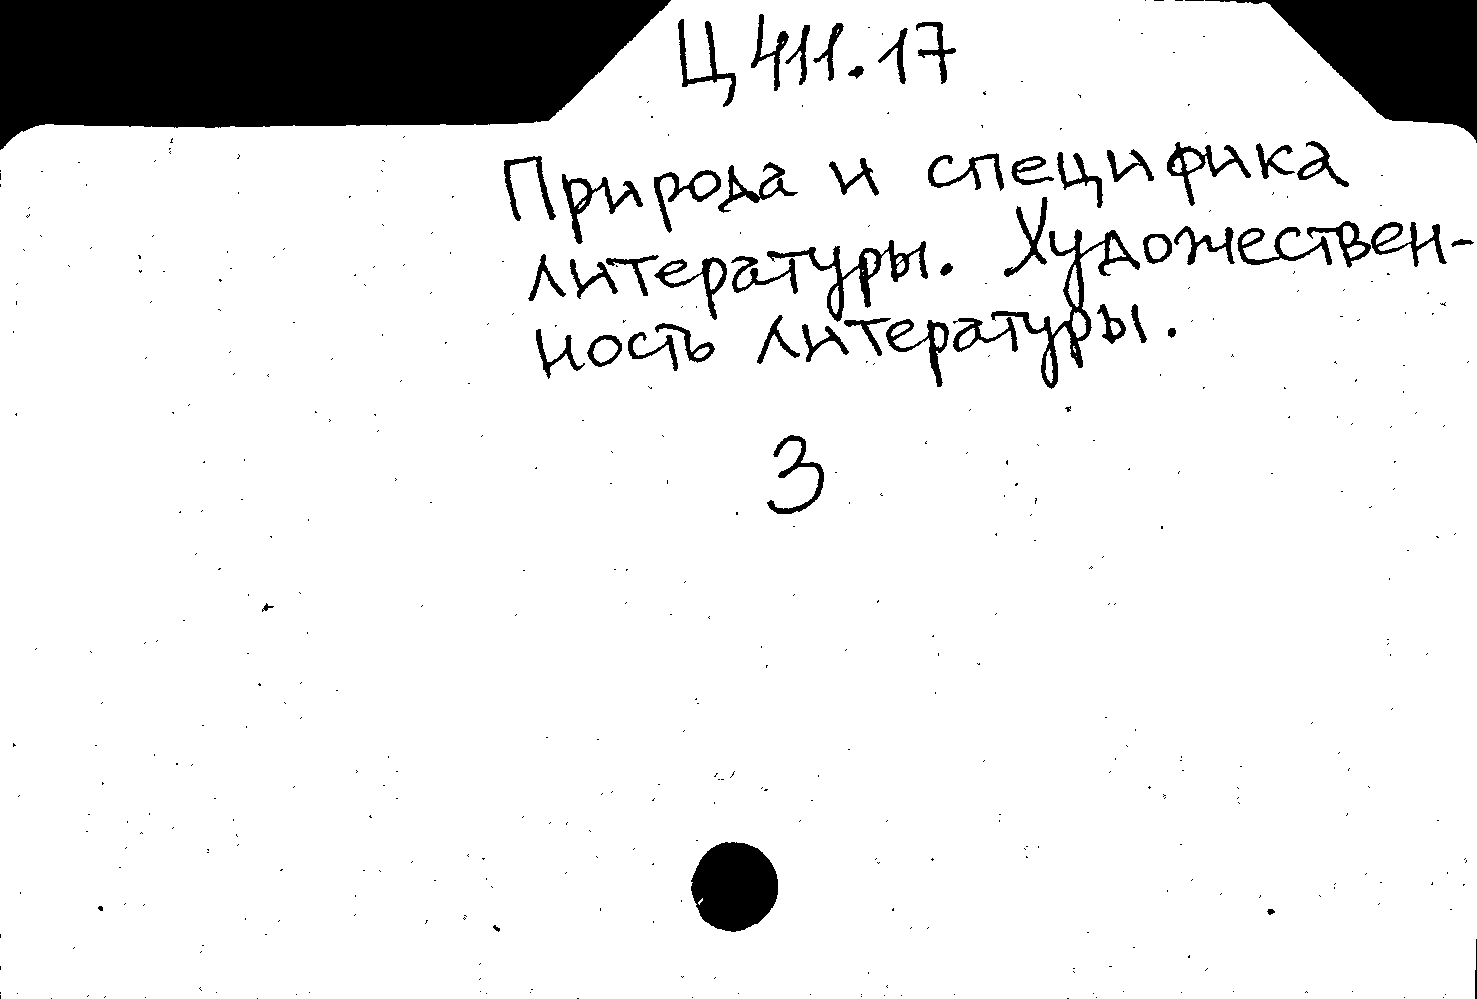 Ц 411.17
Природа и специфика
литературы. Художествен-
ность литературы.
3